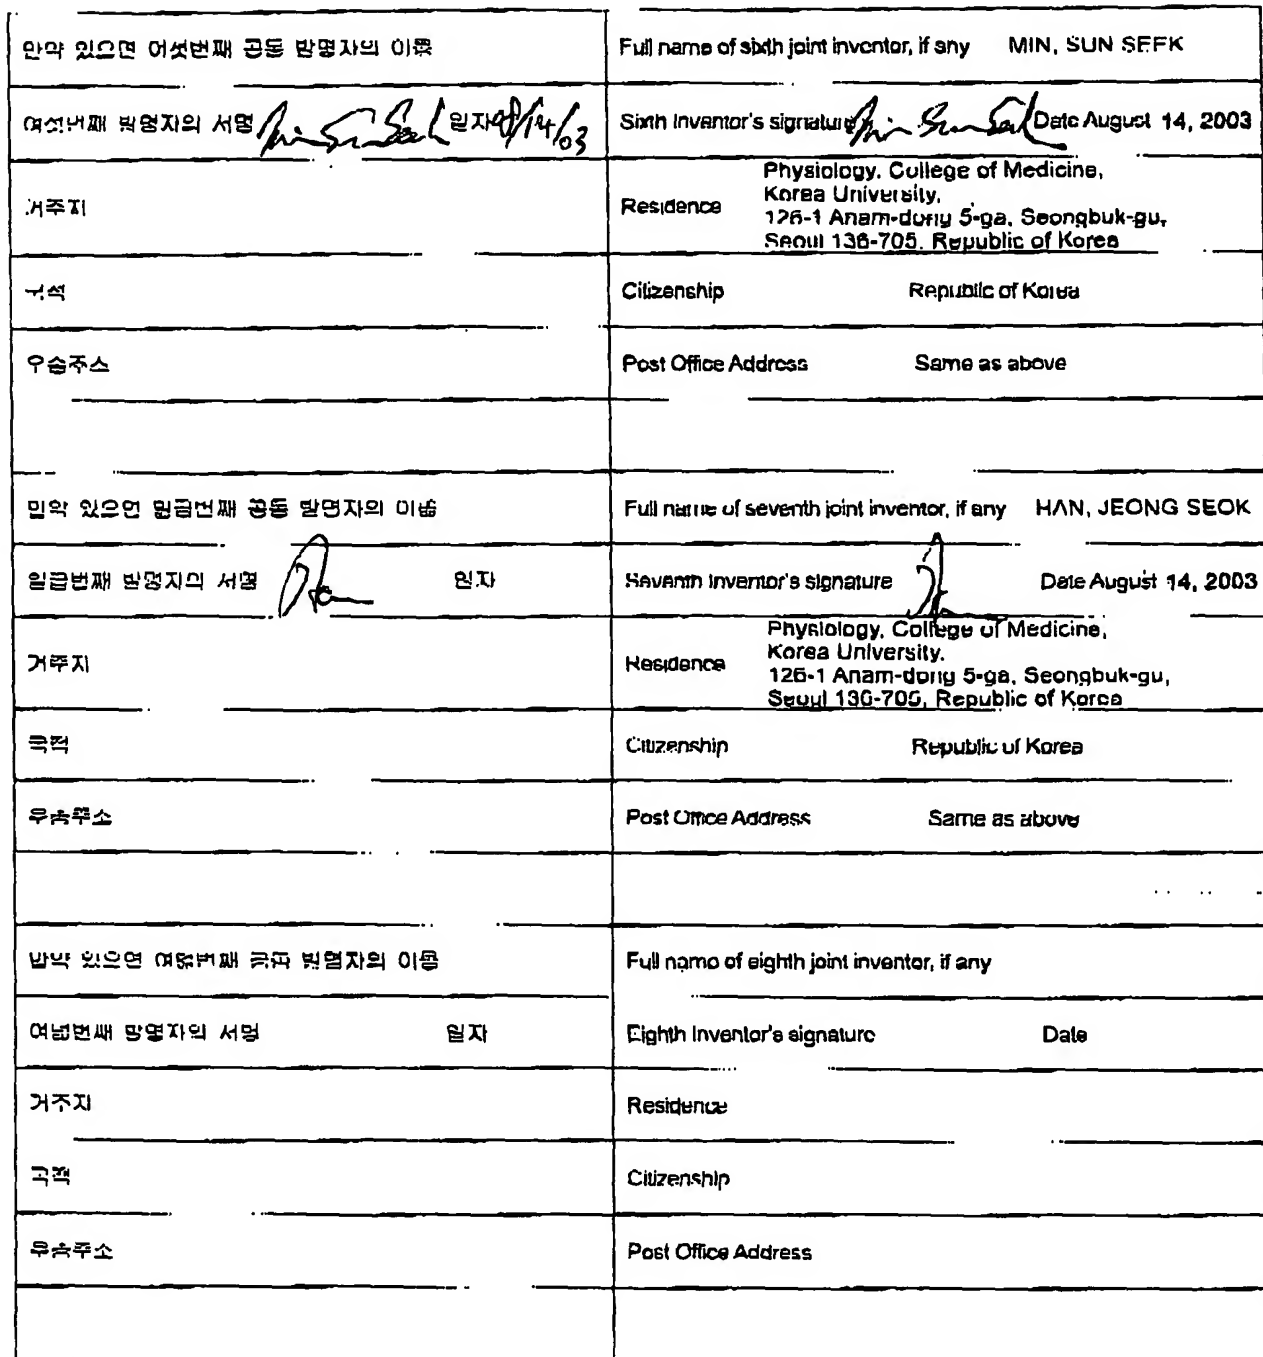 만약 있으면 여섯번째 공동 발명자의 이름
Full name of sixth joint inventor, if any MIN, SUN SEEK
여섯번째 발명자의 서명 Min Sun Seek 일자 08/14/03
Sixth Inventor's signature Min Sun Seek Date August 14, 2003
거주지
Residence Physiology, College of Medicine,
Korea University,
126-1 Anam-dong 5-ga, Seongbuk-gu,
Seoul 136-705, Republic of Korea
국적
Citizenship Republic of Korea
우송주소
Post Office Address Same as above
만약 있으면 일곱번째 공동 발명자의 이름
Full name of seventh joint inventor, if any HAN, JEONG SEOK
일곱번째 발명자의 서명 일자
Seventh Inventor's signature Date August 14, 2003
거주지
Residence Physiology, College of Medicine,
Korea University,
126-1 Anam-dong 5-ga, Seongbuk-gu,
Seoul 136-705, Republic of Korea
국적
Citizenship Republic of Korea
우송주소
Post Office Address Same as above
만약 있으면 여덟번째 공동 발명자의 이름
Full name of eighth joint inventor, if any
여덟번째 발명자의 서명 일자
Eighth Inventor's signature Date
거주지
Residence
국적
Citizenship
우송주소
Post Office Address